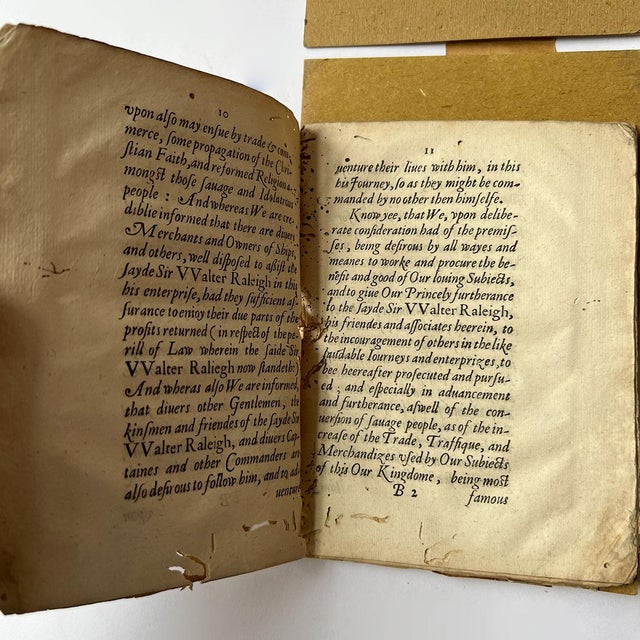 10
vpon alſo may enſue by trade & com-
merce, ſome propagation of the Chri-
ſtian Faith, and reformed Religion a-
mongſt thoſe ſauage and Idolatrous
people : And whereas We are cre-
diblie informed that there are diuers
Merchants and Owners of Ships,
and others, well diſpoſed to aſſiſt the
ſayde Sir VValter Raleigh in this
his enterpriſe, had they ſufficient aſ-
ſurance to enioy their due parts of the
profits returned (in reſpect of the pe-
rill of Law wherein the ſaide Sir
VValter Raliegh now ſtandeth:)
And wheras alſo We are informed,
that diuers other Gentlemen, the
kinſmen and friendes of the ſayde Sir
VValter Raleigh, and diuers Cap-
taines and other Commanders are
alſo deſirous to follow him, and to ad-
uenture
11
uenture their liues with him, in this
his Iourney, ſo as they might be com-
manded by no other then himſelfe.
Know yee, that We, vpon delibe-
rate conſideration had of the premiſ-
ſes, being deſirous by all wayes and
meanes to worke and procure the be-
nefit and good of Our louing Subiects,
and to giue Our Princely furtherance
to the ſayde Sir VValter Raleigh,
his friendes and aſſociates heerein, to
the incouragement of others in the like
laudable Iourneys and enterprizes, to
bee heereafter proſecuted and purſu-
ed ; and eſpecially in aduancement
and furtherance, aſwell of the con-
uerſion of ſauage people, as of the in-
creaſe of the Trade, Traffique, and
Merchandizes vſed by Our Subiects
of this Our Kingdome, being moſt
B 2 famous